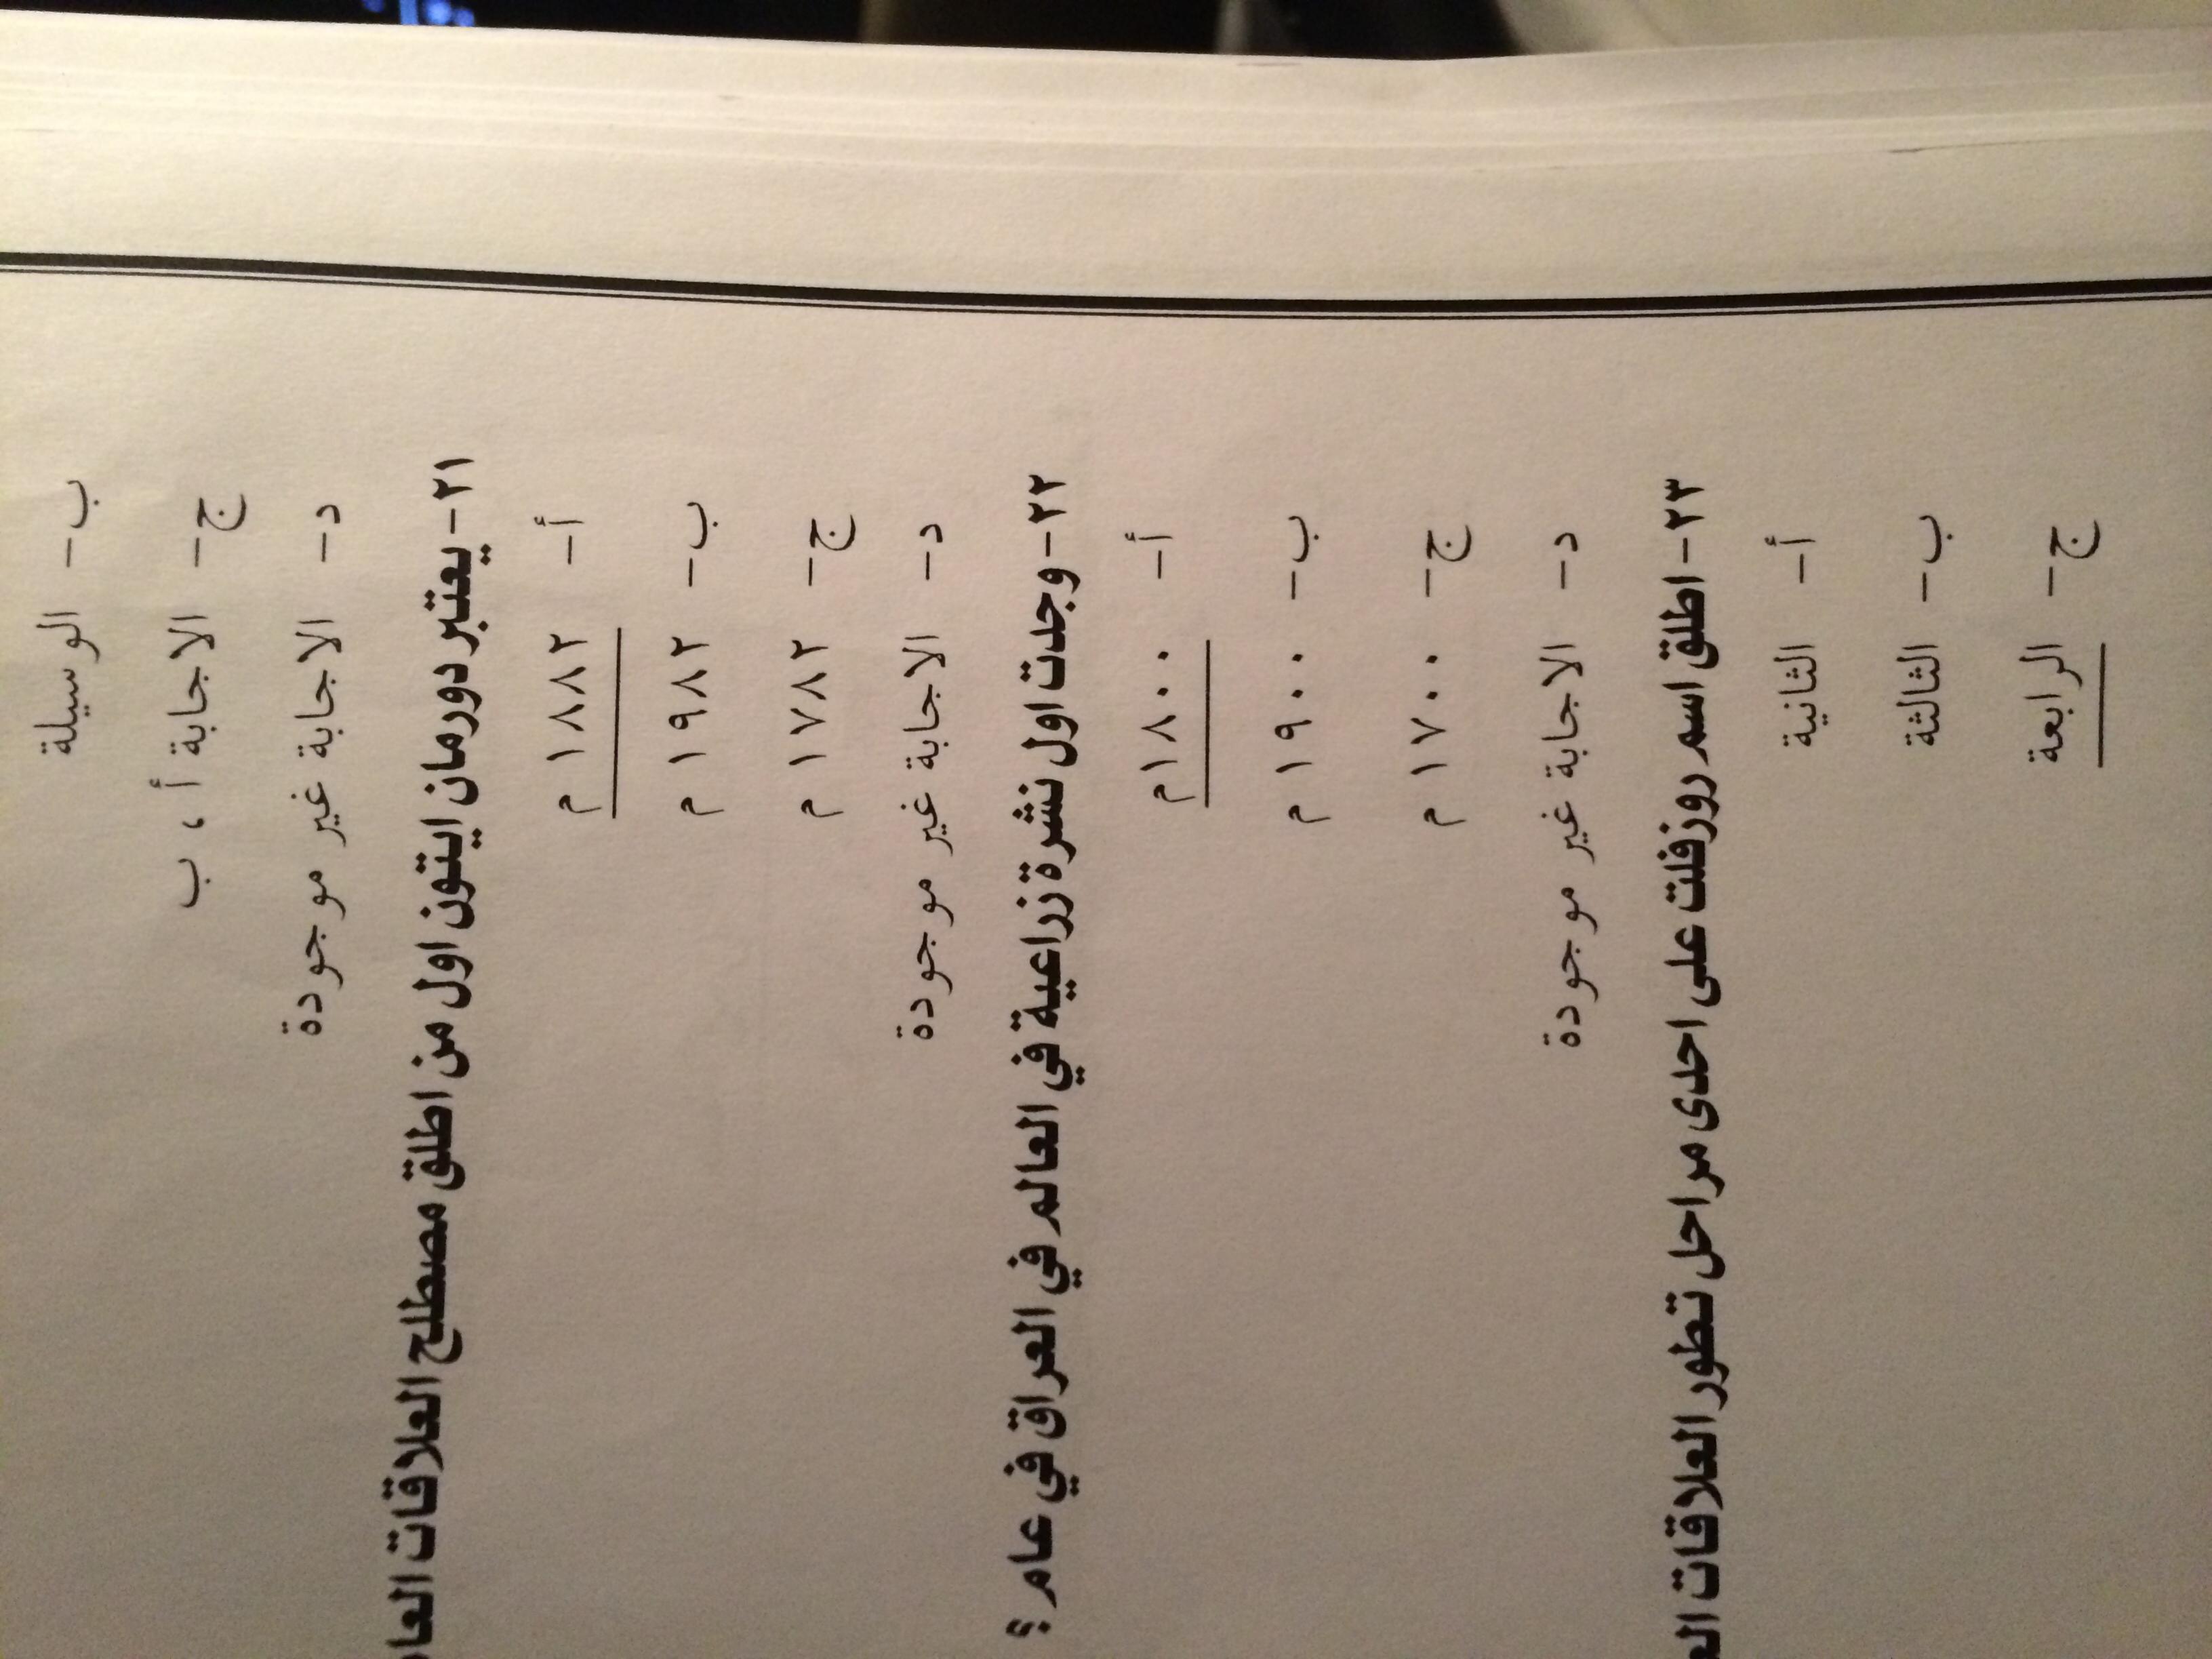 ب- الوسيلة
ج- الاجابة أ ، ب
د- الاجابة غير موجودة
٢١- يعتبر دورمان ايتون اول من اطلق مصطلح العلاقات
أ- ١٨٨٢ م
ب- ١٩٨٢ م
ج- ١٧٨٢ م
د- الاجابة غير موجودة
٢٢- وجدت اول نشرة زراعية في العالم في العراق في عام ؟
أ- ١٨٠٠م
ب- ١٩٠٠ م
ج- ١٧٠٠ م
د- الاجابة غير موجودة
٢٣- اطلق اسم روزفلت على احدى مراحل تطور العلاقات
أ- الثانية
ب- الثالثة
ج- الرابعة